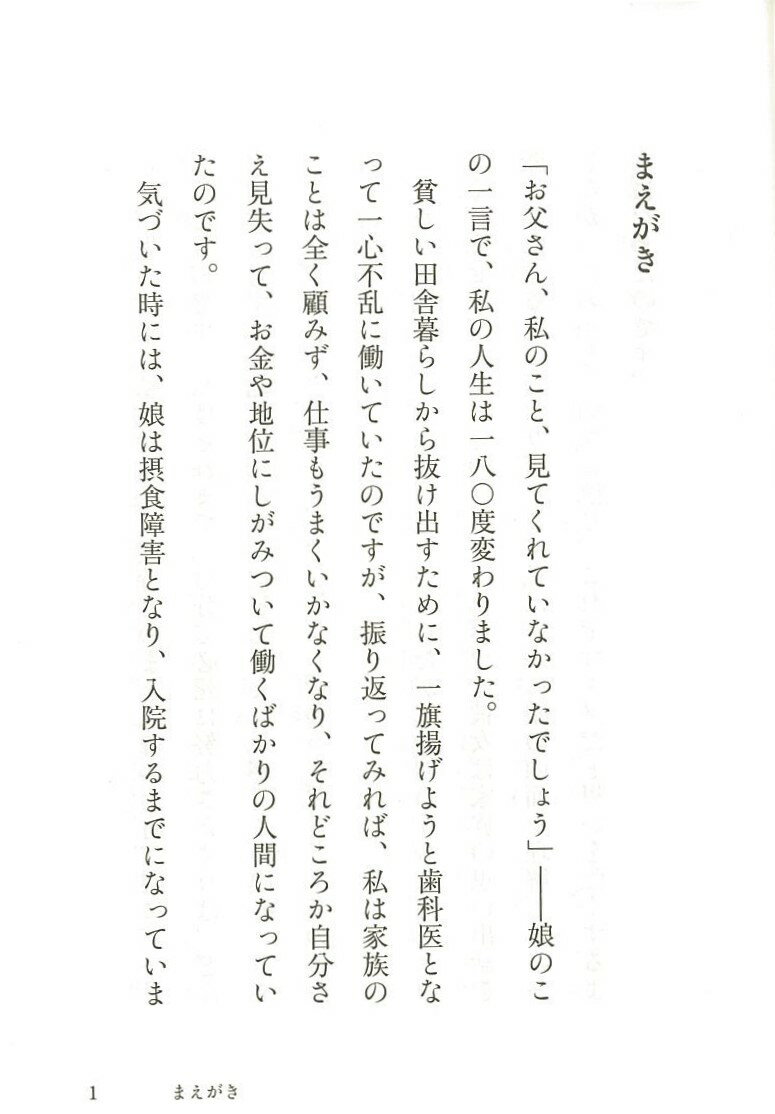 まえがき
「お父さん、私のこと、見てくれていなかったでしょう」――娘のこ
の一言で、私の人生は一八〇度変わりました。
貧しい田舎暮らしから抜け出すために、一旗揚げようと歯科医とな
って一心不乱に働いていたのですが、振り返ってみれば、私は家族の
ことは全く顧みず、仕事もうまくいかなくなり、それどころか自分さ
え見失って、お金や地位にしがみついて働くばかりの人間になってい
たのです。
気づいた時には、娘は摂食障害となり、入院するまでになっていま
1 まえがき